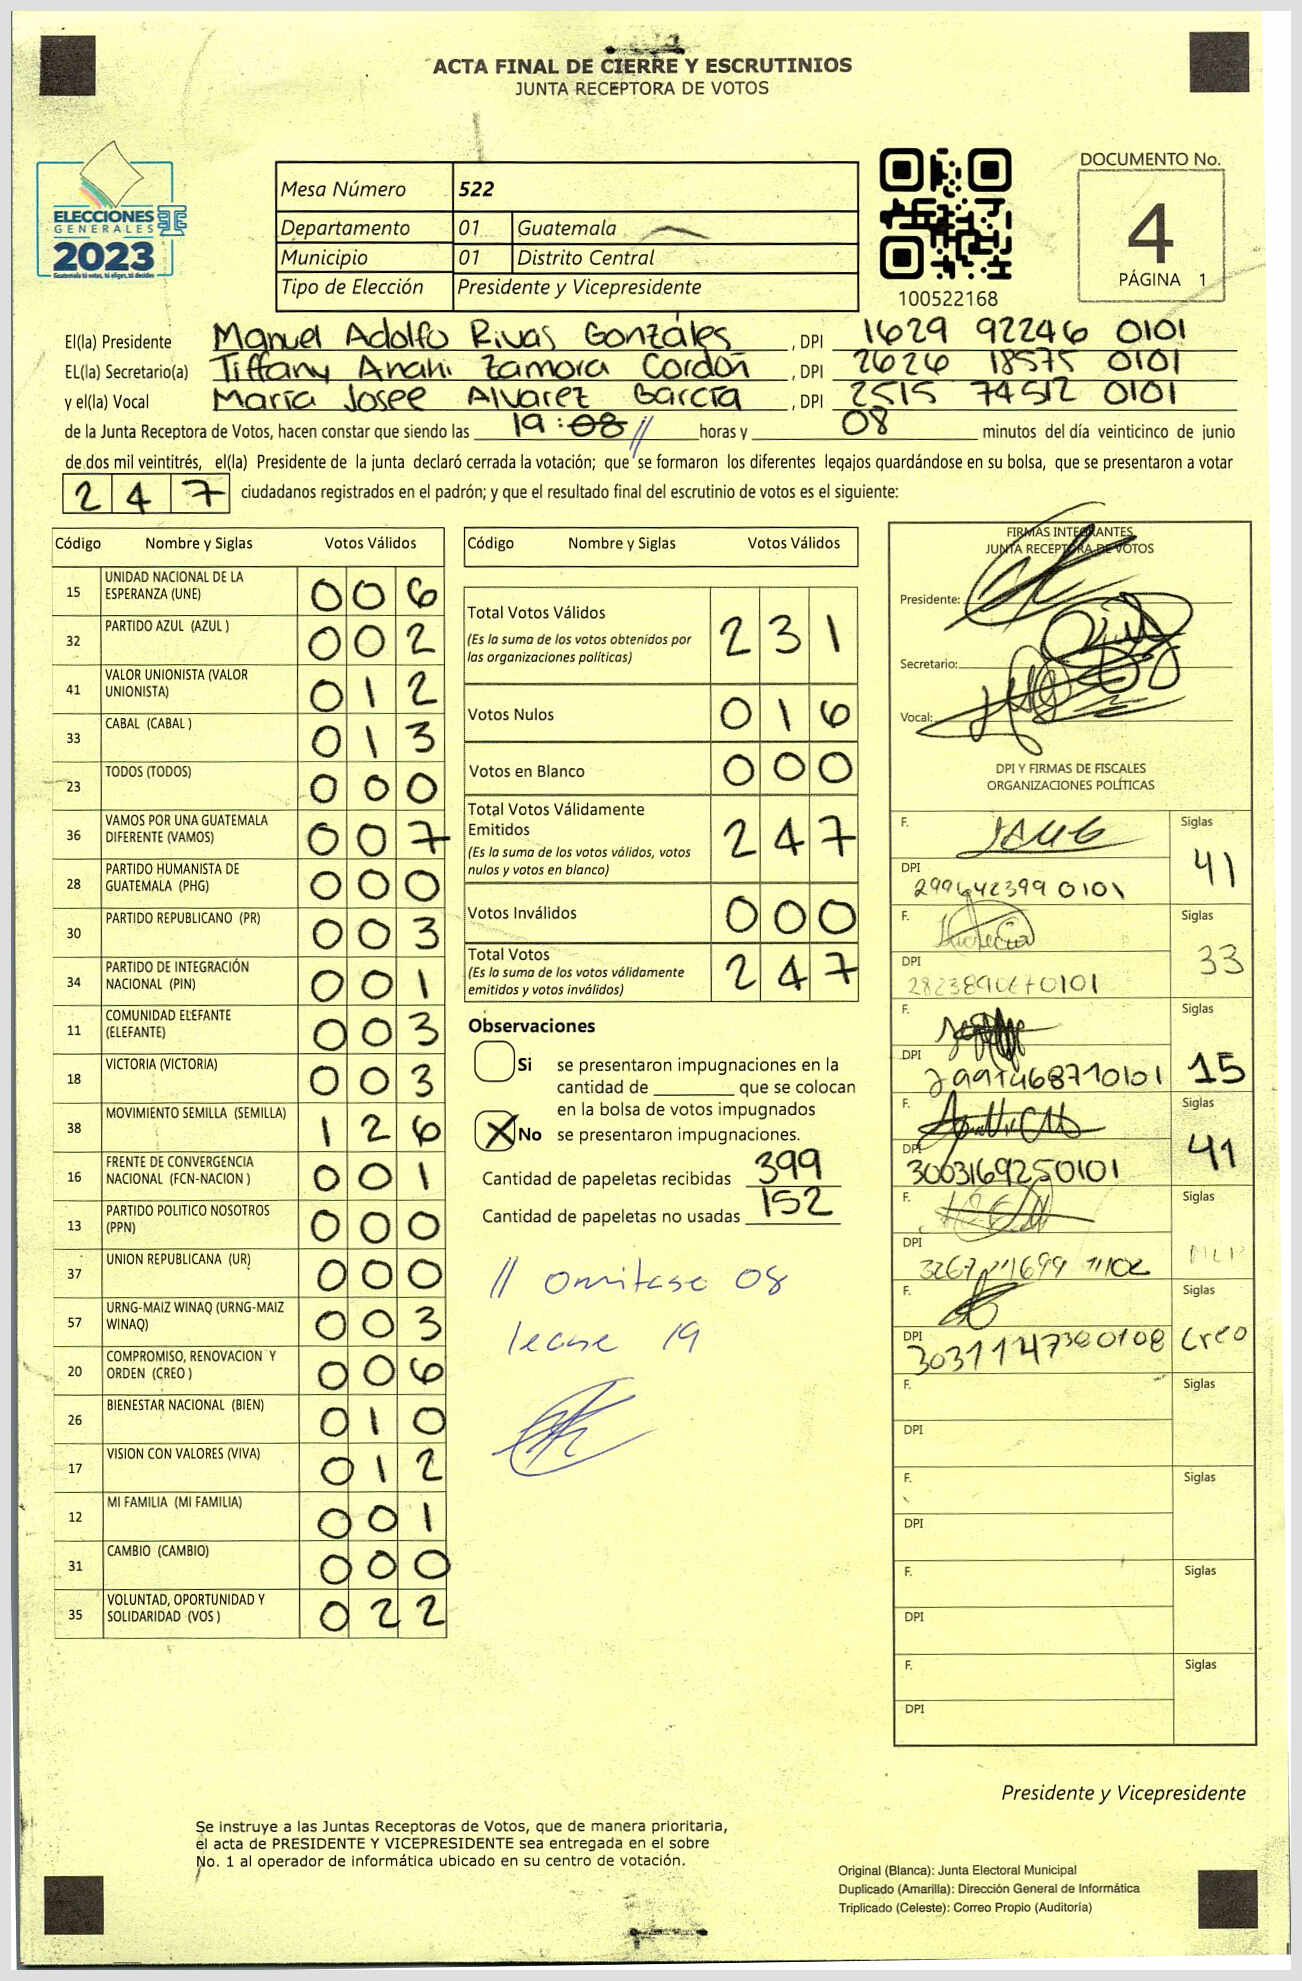 ACTA FINAL DE CIERRE Y ESCRUTINIOS
JUNTA RECEPTORA DE VOTOS
ELECCIONES
GENERALES
2023
Guatemala tú votas, tú eliges, tú decides
Mesa Número 522
Departamento 01 Guatemala
Municipio 01 Distrito Central
Tipo de Elección Presidente y Vicepresidente
100522168
DOCUMENTO No.
4
PÁGINA 1
El(la) Presidente Manuel Adolfo Rivas Gonzáles, DPI 1629 92246 0101
EL(la) Secretario(a) Tiffany Anahi Zamora Cordón, DPI 2626 18575 0101
y el(la) Vocal María Josee Alvarez García, DPI 2515 74512 0101
de la Junta Receptora de Votos, hacen constar que siendo las 19:08 // horas y 08 minutos del día veinticinco de junio
de dos mil veintitrés, el(la) Presidente de la junta declaró cerrada la votación; que se formaron los diferentes legajos quardándose en su bolsa, que se presentaron a votar
247 ciudadanos registrados en el padrón; y que el resultado final del escrutinio de votos es el siguiente:
Código Nombre y Siglas Votos Válidos
15 UNIDAD NACIONAL DE LA ESPERANZA (UNE) 006
32 PARTIDO AZUL (AZUL ) 002
41 VALOR UNIONISTA (VALOR UNIONISTA) 012
33 CABAL (CABAL ) 013
23 TODOS (TODOS) 000
36 VAMOS POR UNA GUATEMALA DIFERENTE (VAMOS) 007
28 PARTIDO HUMANISTA DE GUATEMALA (PHG) 000
30 PARTIDO REPUBLICANO (PR) 003
34 PARTIDO DE INTEGRACIÓN NACIONAL (PIN) 001
11 COMUNIDAD ELEFANTE (ELEFANTE) 003
18 VICTORIA (VICTORIA) 003
38 MOVIMIENTO SEMILLA (SEMILLA) 126
16 FRENTE DE CONVERGENCIA NACIONAL (FCN-NACION ) 001
13 PARTIDO POLITICO NOSOTROS (PPN) 000
37 UNION REPUBLICANA (UR) 000
57 URNG-MAIZ WINAQ (URNG-MAIZ WINAQ) 003
20 COMPROMISO, RENOVACION Y ORDEN (CREO ) 006
26 BIENESTAR NACIONAL (BIEN) 010
17 VISION CON VALORES (VIVA) 012
12 MI FAMILIA (MI FAMILIA) 001
31 CAMBIO (CAMBIO) 000
35 VOLUNTAD, OPORTUNIDAD Y SOLIDARIDAD (VOS ) 022
Código Nombre y Siglas Votos Válidos
Total Votos Válidos 231
(Es la suma de los votos obtenidos por
las organizaciones políticas)
Votos Nulos 016
Votos en Blanco 000
Total Votos Válidamente
Emitidos 247
(Es la suma de los votos válidos, votos
nulos y votos en blanco)
Votos Inválidos 000
Total Votos 247
(Es la suma de los votos válidamente
emitidos y votos inválidos)
Observaciones
Si se presentaron impugnaciones en la
cantidad de ________ que se colocan
en la bolsa de votos impugnados
X No se presentaron impugnaciones.
Cantidad de papeletas recibidas 399
Cantidad de papeletas no usadas 152
// omitase 08
lease 19
FIRMAS INTEGRANTES
JUNTA RECEPTORA DE VOTOS
Presidente:
Secretario:
Vocal:
DPI Y FIRMAS DE FISCALES
ORGANIZACIONES POLÍTICAS
F. Siglas
DPI 41
F. Siglas
DPI 33
F. Siglas
DPI 2991468710101 15
F. Siglas
DPI 3003169250101 41
F. Siglas
DPI
F. Siglas
DPI 3031147380108 Creo
F. Siglas
DPI
F. Siglas
DPI
F. Siglas
DPI
F. Siglas
DPI
Presidente y Vicepresidente
Se instruye a las Juntas Receptoras de Votos, que de manera prioritaria,
el acta de PRESIDENTE Y VICEPRESIDENTE sea entregada en el sobre
No. 1 al operador de informática ubicado en su centro de votación.
Original (Blanca): Junta Electoral Municipal
Duplicado (Amarilla): Dirección General de Informática
Triplicado (Celeste): Correo Propio (Auditoría)